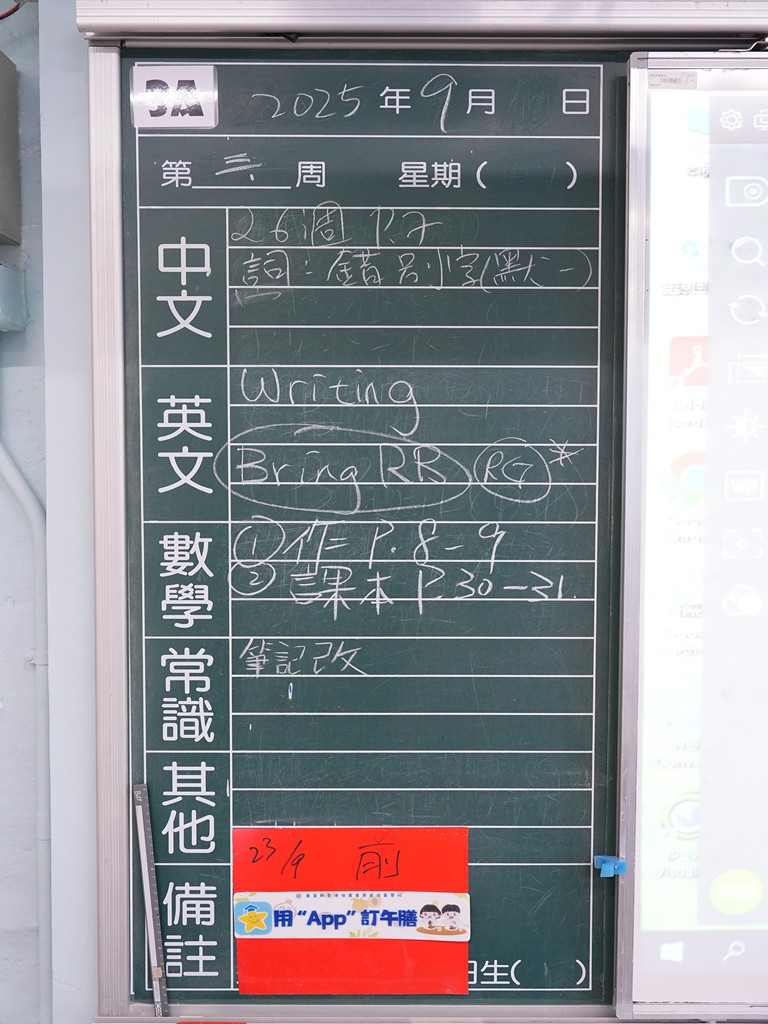 3A
2025年9月 日
第三周 星期( )
中文
26週 P.7
詞:錯別字(默一)
英文
Writing
Bring RB RG*
數學
①作二 P.8-9
② 課本 P.30-31
常識
筆記改
其他
備註
23/9 前
用“App”訂午膳
日生( )
WB